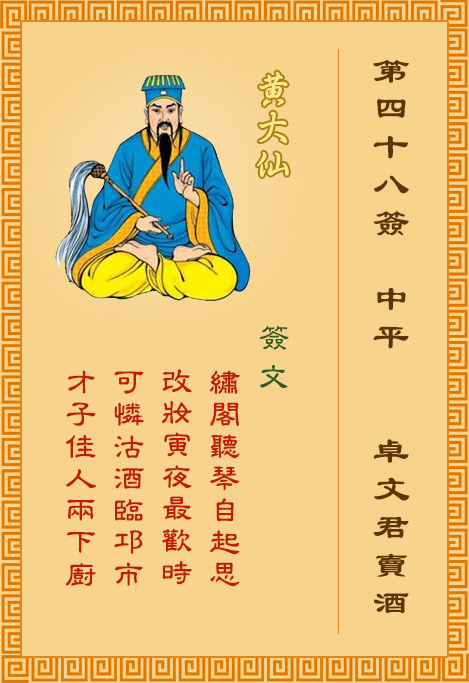 第四十八簽 中平 卓文君賣酒
黃大仙
簽文
繡閣聽琴自起思
改妝寅夜最歡時
可憐沽酒臨邛市
才子佳人兩下廚